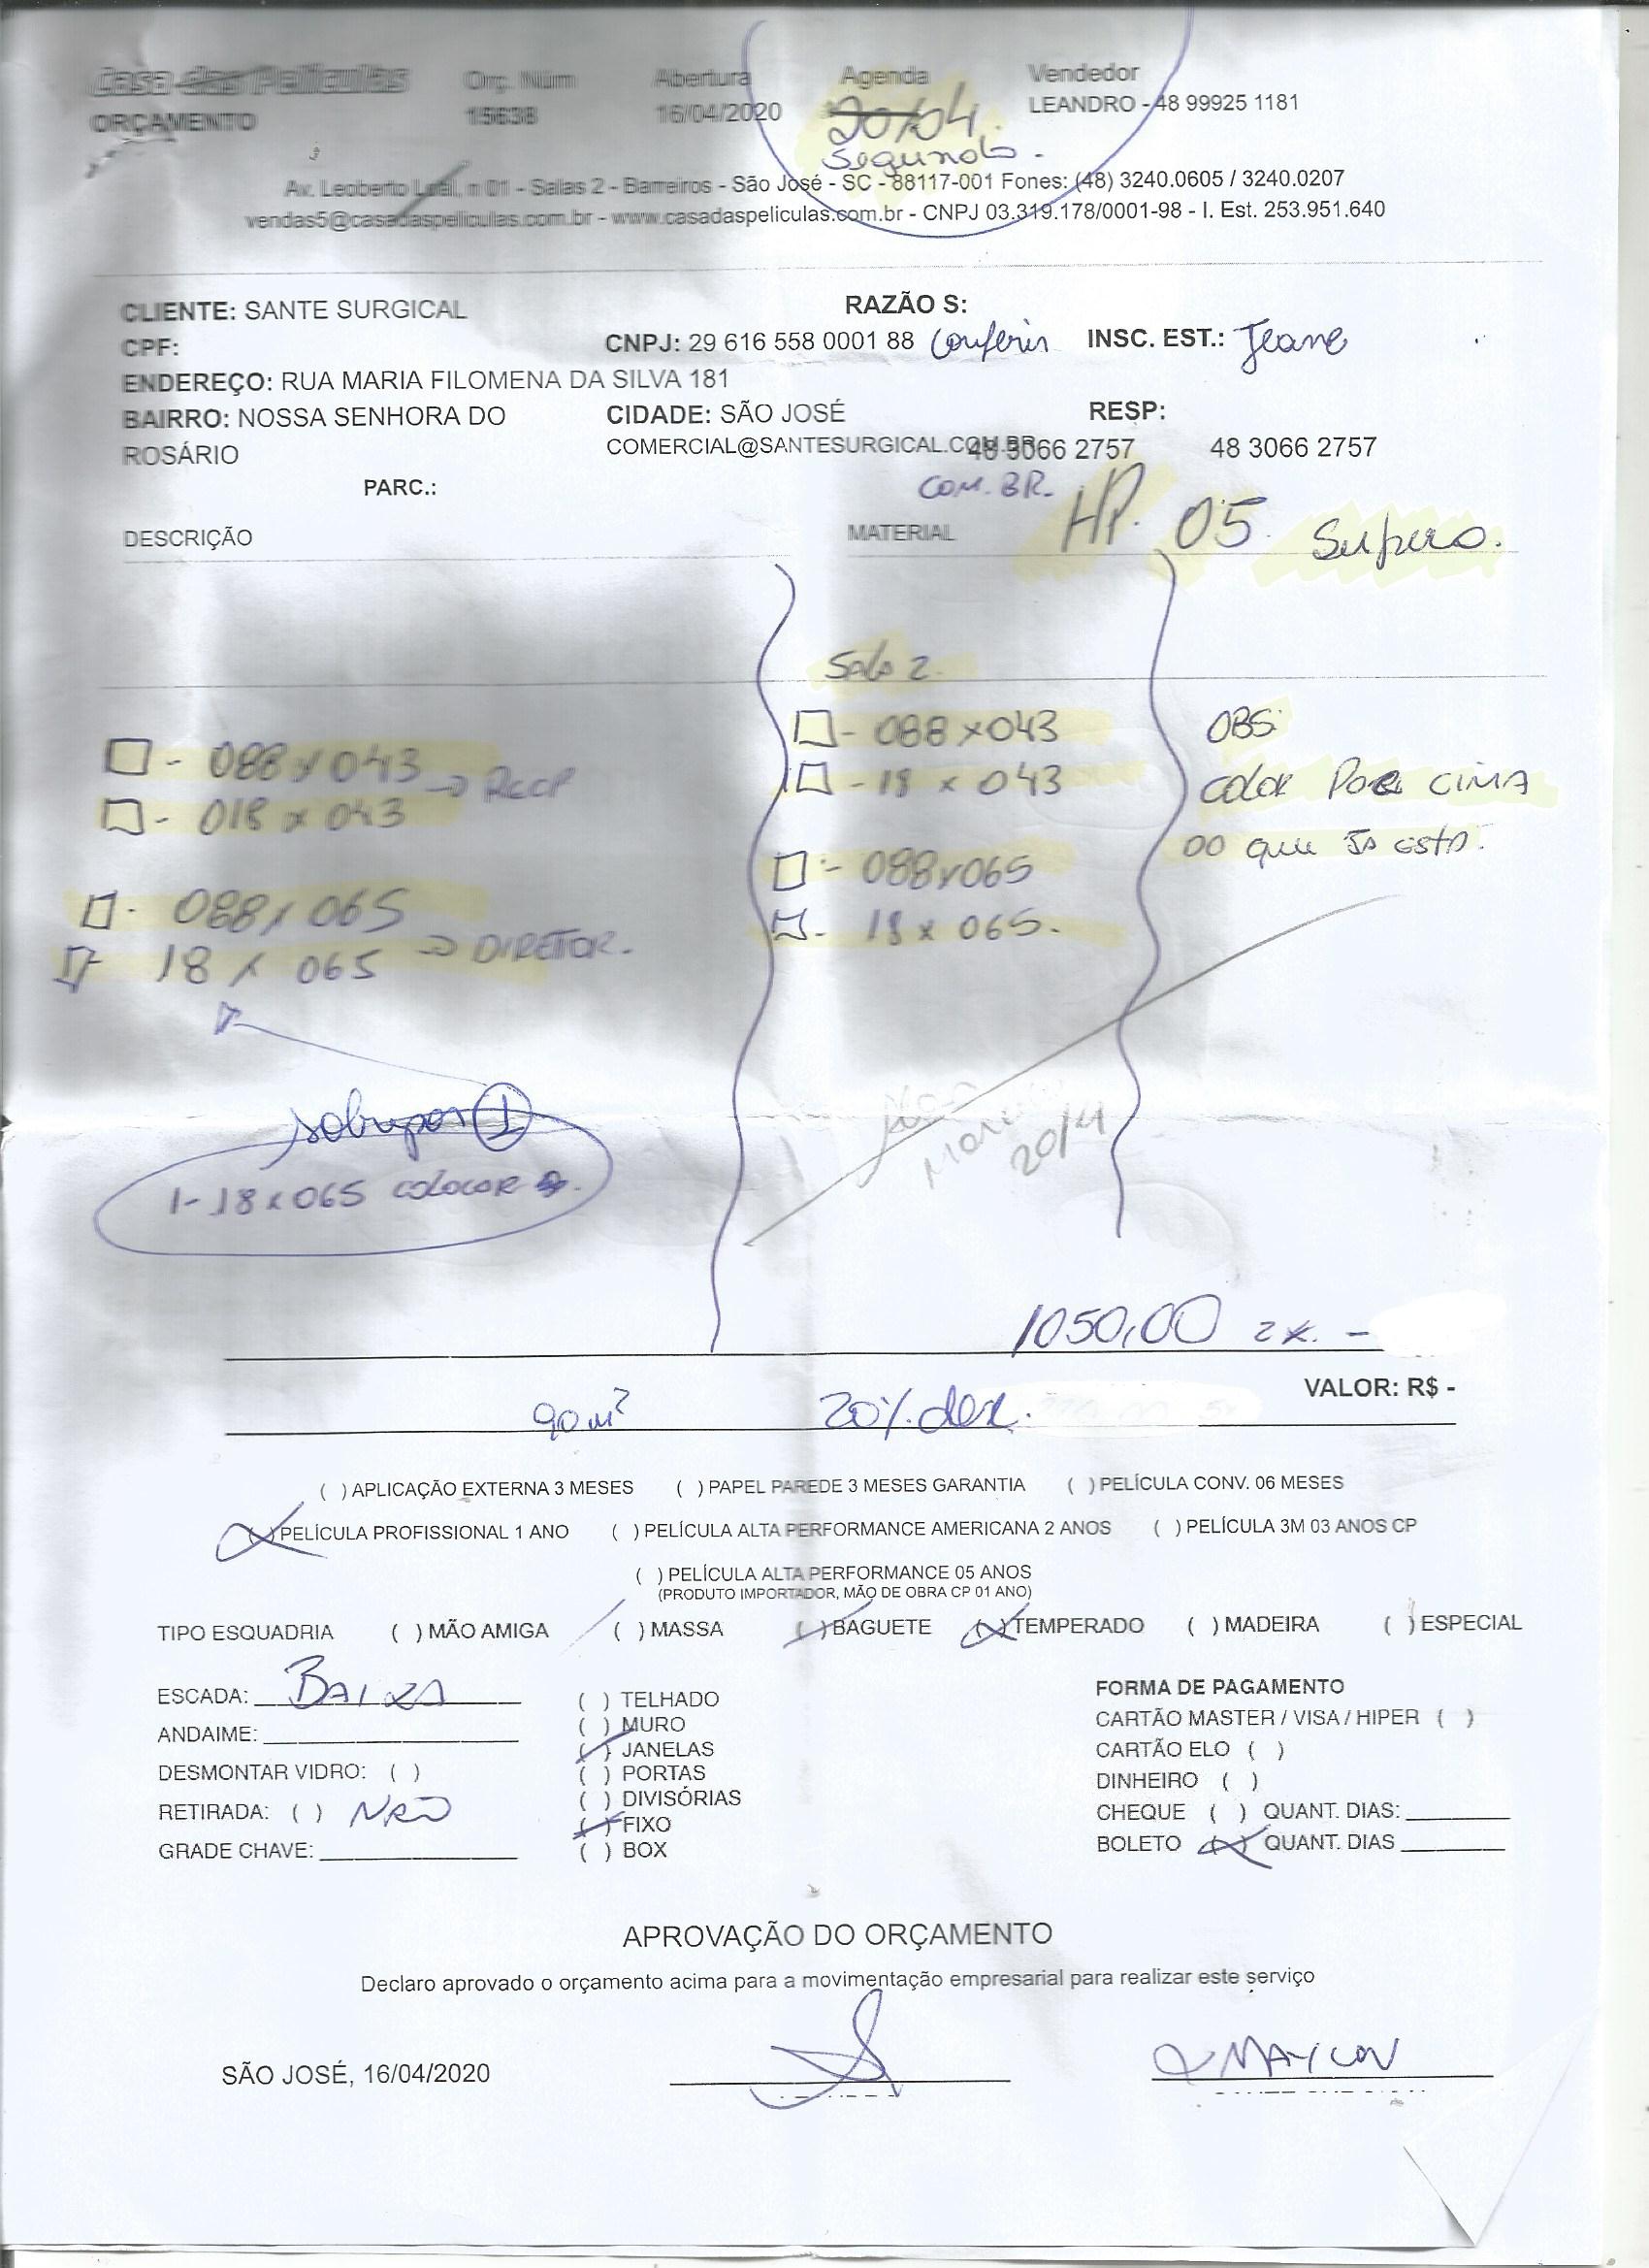 Casa das Películas Orç. Núm Abertura Agenda Vendedor
ORÇAMENTO 15638 16/04/2020 20/04 LEANDRO - 48 99925 1181
segunda
Av. Leoberto Leal, n 01 - Salas 2 - Barreiros - São José - SC - 88117-001 Fones: (48) 3240.0605 / 3240.0207
vendas5@casadaspeliculas.com.br - www.casadaspeliculas.com.br - CNPJ 03.319.178/0001-98 - I. Est. 253.951.640
CLIENTE: SANTE SURGICAL RAZÃO S:
CPF: CNPJ: 29 616 558 0001 88 Conferir INSC. EST.: Jeane
ENDEREÇO: RUA MARIA FILOMENA DA SILVA 181
BAIRRO: NOSSA SENHORA DO CIDADE: SÃO JOSÉ RESP:
ROSÁRIO COMERCIAL@SANTESURGICAL.COM.BR 48 3066 2757 48 3066 2757
PARC.: COM.BR.
DESCRIÇÃO MATERIAL HP. 05
- 088 x 043 → RECP
- 018 x 043
- 088 x 065
18 x 065 → DIRETOR.
sobrepor 1
1- 18 x 065 colocar
Sala 2
- 088 x 043
- 18 x 043
- 088 x 065
- 18 x 065.
OBS:
COLOR POR CIMA
DO QUE JÁ ESTÁ.
20/4
1050,00 2x. -
VALOR: R$ -
90m² 20%
( ) APLICAÇÃO EXTERNA 3 MESES ( ) PAPEL PAREDE 3 MESES GARANTIA ( ) PELÍCULA CONV. 06 MESES
(X) PELÍCULA PROFISSIONAL 1 ANO ( ) PELÍCULA ALTA PERFORMANCE AMERICANA 2 ANOS ( ) PELÍCULA 3M 03 ANOS CP
( ) PELÍCULA ALTA PERFORMANCE 05 ANOS
(PRODUTO IMPORTADOR, MÃO DE OBRA CP 01 ANO)
TIPO ESQUADRIA ( ) MÃO AMIGA ( ) MASSA ( ) BAGUETE (X) TEMPERADO ( ) MADEIRA ( ) ESPECIAL
ESCADA: BAIXA
ANDAIME:
DESMONTAR VIDRO: ( )
RETIRADA: ( ) NÃO
GRADE CHAVE:
( ) TELHADO
( ) MURO
( ) JANELAS
( ) PORTAS
( ) DIVISÓRIAS
( ) FIXO
( ) BOX
FORMA DE PAGAMENTO
CARTÃO MASTER / VISA / HIPER ( )
CARTÃO ELO ( )
DINHEIRO ( )
CHEQUE ( ) QUANT. DIAS:
BOLETO (X) QUANT. DIAS
APROVAÇÃO DO ORÇAMENTO
Declaro aprovado o orçamento acima para a movimentação empresarial para realizar este serviço
SÃO JOSÉ, 16/04/2020 MAYCON